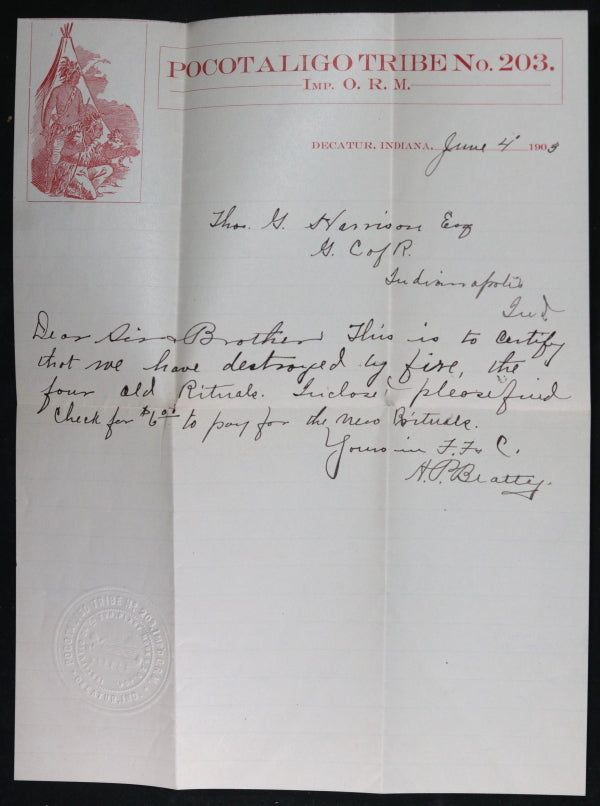 POCOTALIGO TRIBE No. 203.
IMP. O. R. M.
DECATUR, INDIANA, June 4 1903
Thos. G. Harrison Esq
G. C of R.
Indianapolis
Ind.
Dear Sir & Brother This is to certify
that we have destroyed by fire, the
four old Rituals. Inclose please find
Check for $6.00 to pay for the new Rituals.
Yours in F. F. & C.
A. P. Beatty.
POCOTALIGO TRIBE No 203 IMP. O. R. M.
DECATUR, IND.